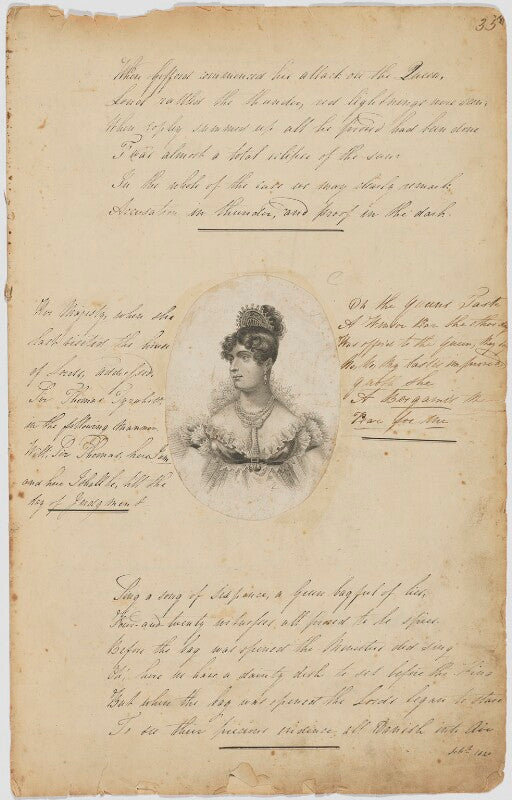 35
When Gifford commenced his attack on the Queen,
Loud rattled the thunder, red lightnings were seen,
When Copley summed up all he proved had been done
T'was almost a total eclipse of the sun:
In the whole of the case we may clearly remark,
Accusation in thunder, and proof in the dark.
Her Majesty, when she
last visited the house
of Lords, addressed
Sir Thomas Tyrwhitt
in the following manner
Well, Sir Thomas, here I am
and here I shall be, till the
day of Judgment
On the Queens Taste
A Windsor Pear the other day
Was offer'd to the Queen, they say
No, No, My taste's improved
quoth she
A Bergamot
Pear for me
Sing a song of Sixpence, a Green bag full of lies,
Four and twenty witnesses, all proved to be spies
Before the bag was opened the Ministers did sing
Oh, here we have a dainty dish to set before the King
But when the bag was opened the Lords began to stare
To see their precious evidence, all Vanish into Air